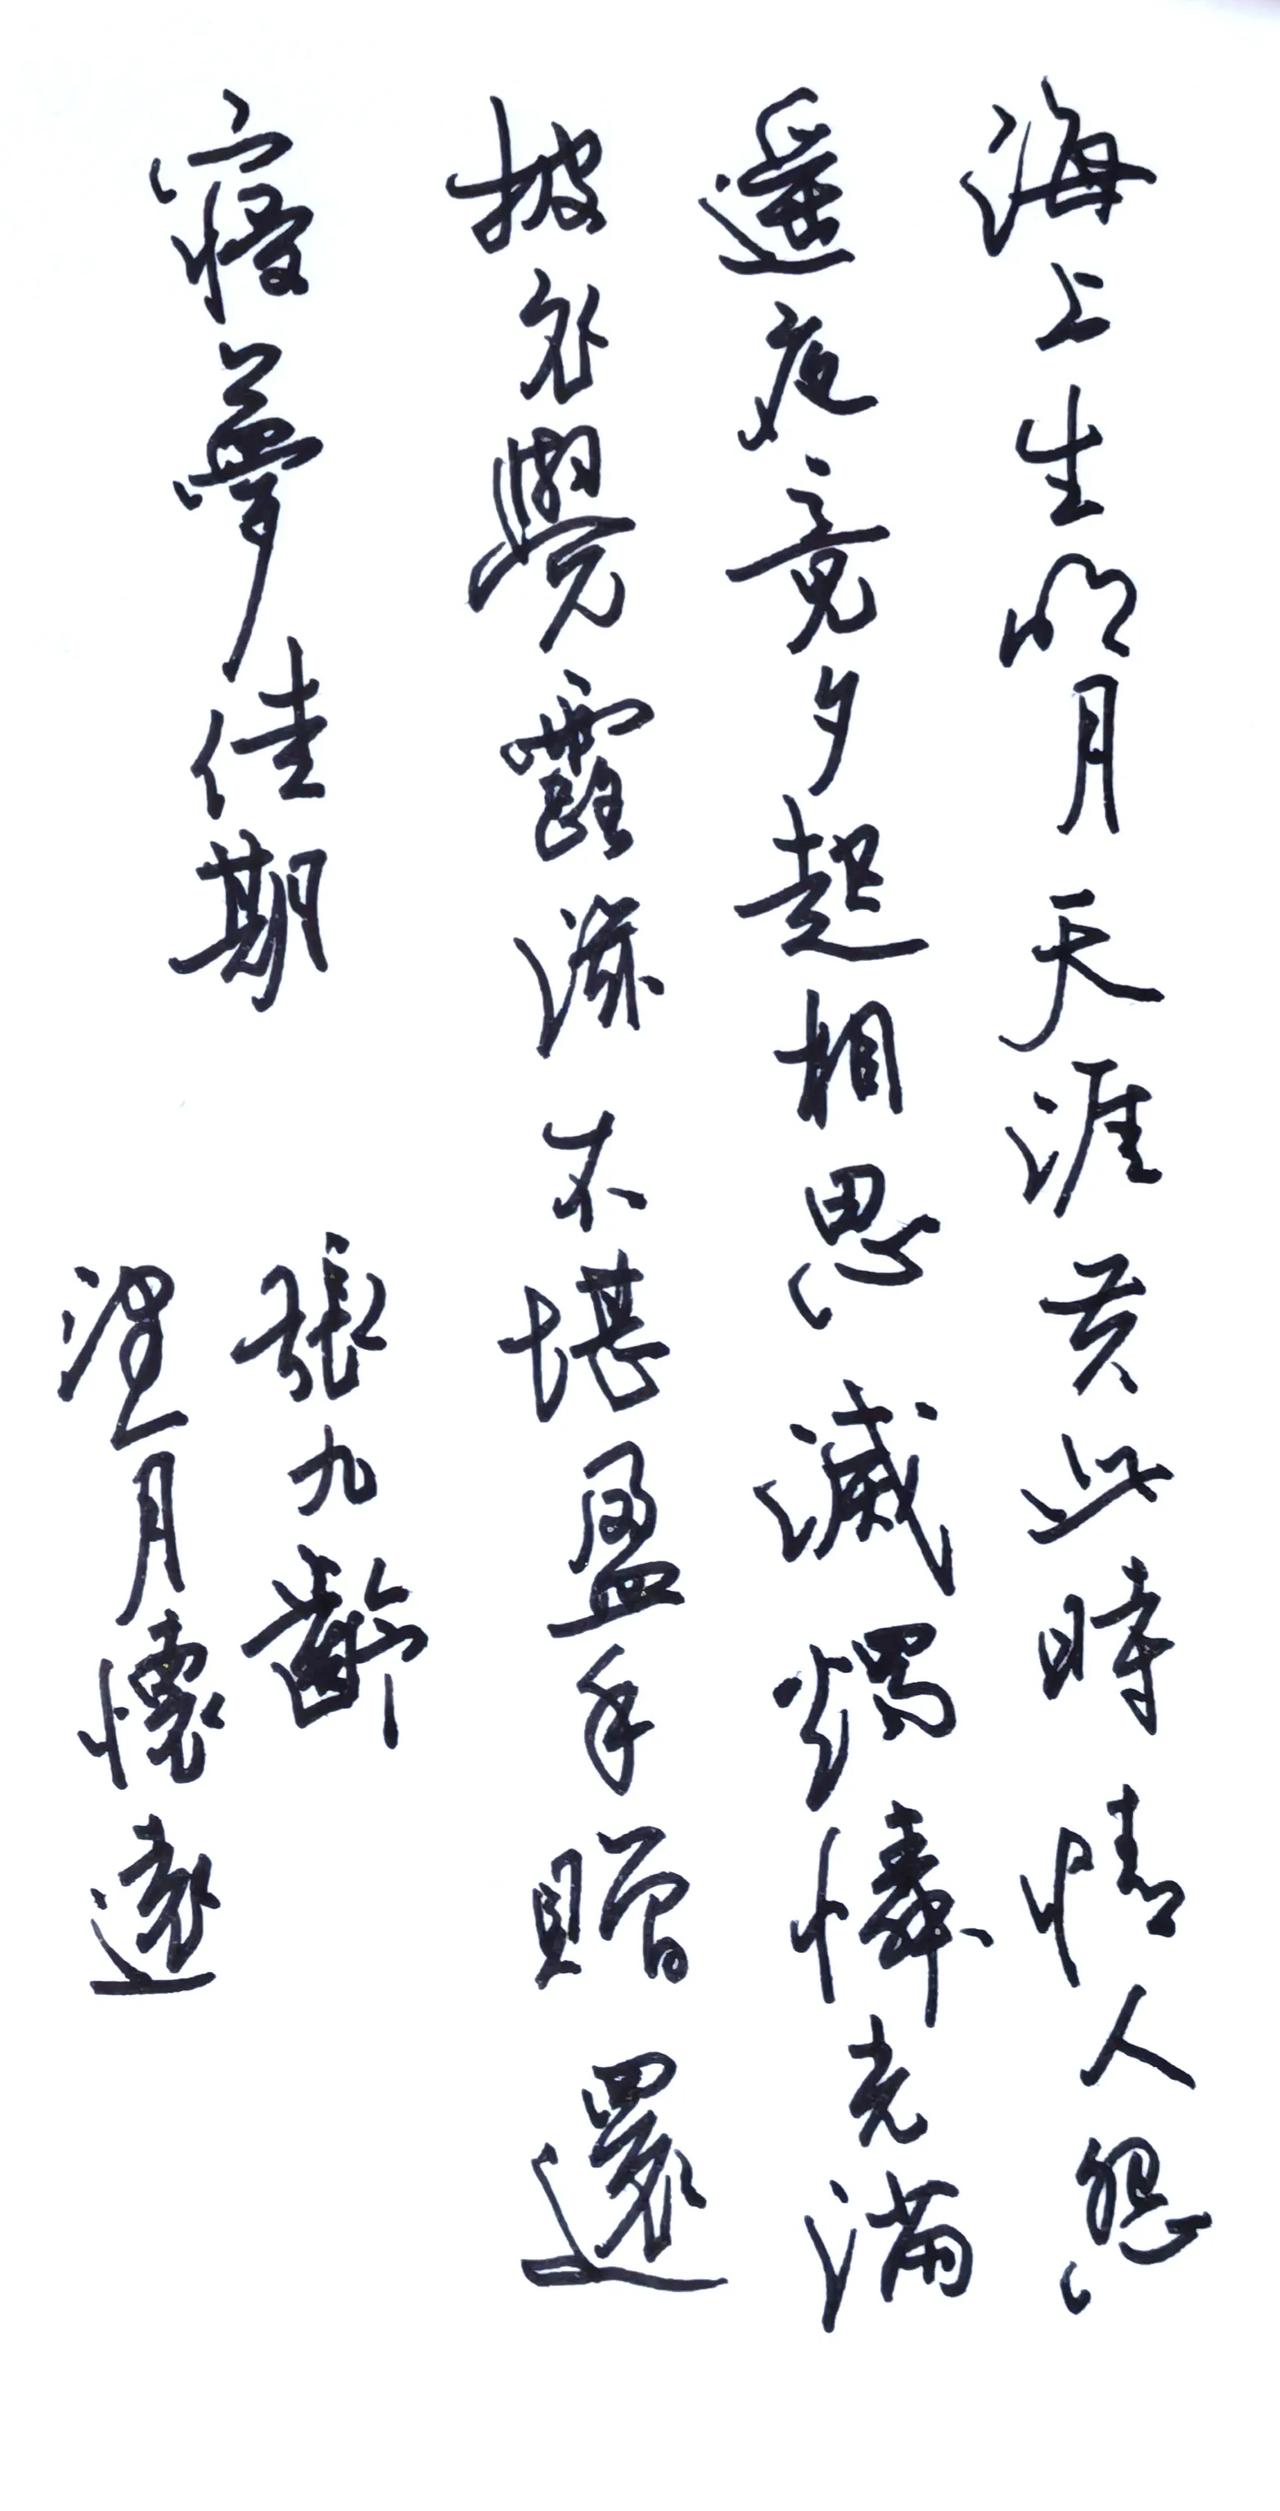 海上生明月天涯共此時情人怨
遙夜竟夕起相思滅燭憐光滿
披衣覺露滋不堪盈手贈還
寢夢佳期
張九齡
望月懷遠